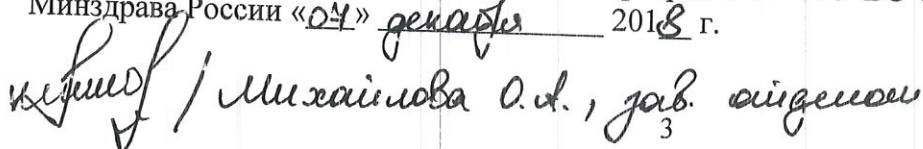 Минздрава России «04» декабря 2018 г.
/ Михайлова О.А., зав. отделом
3